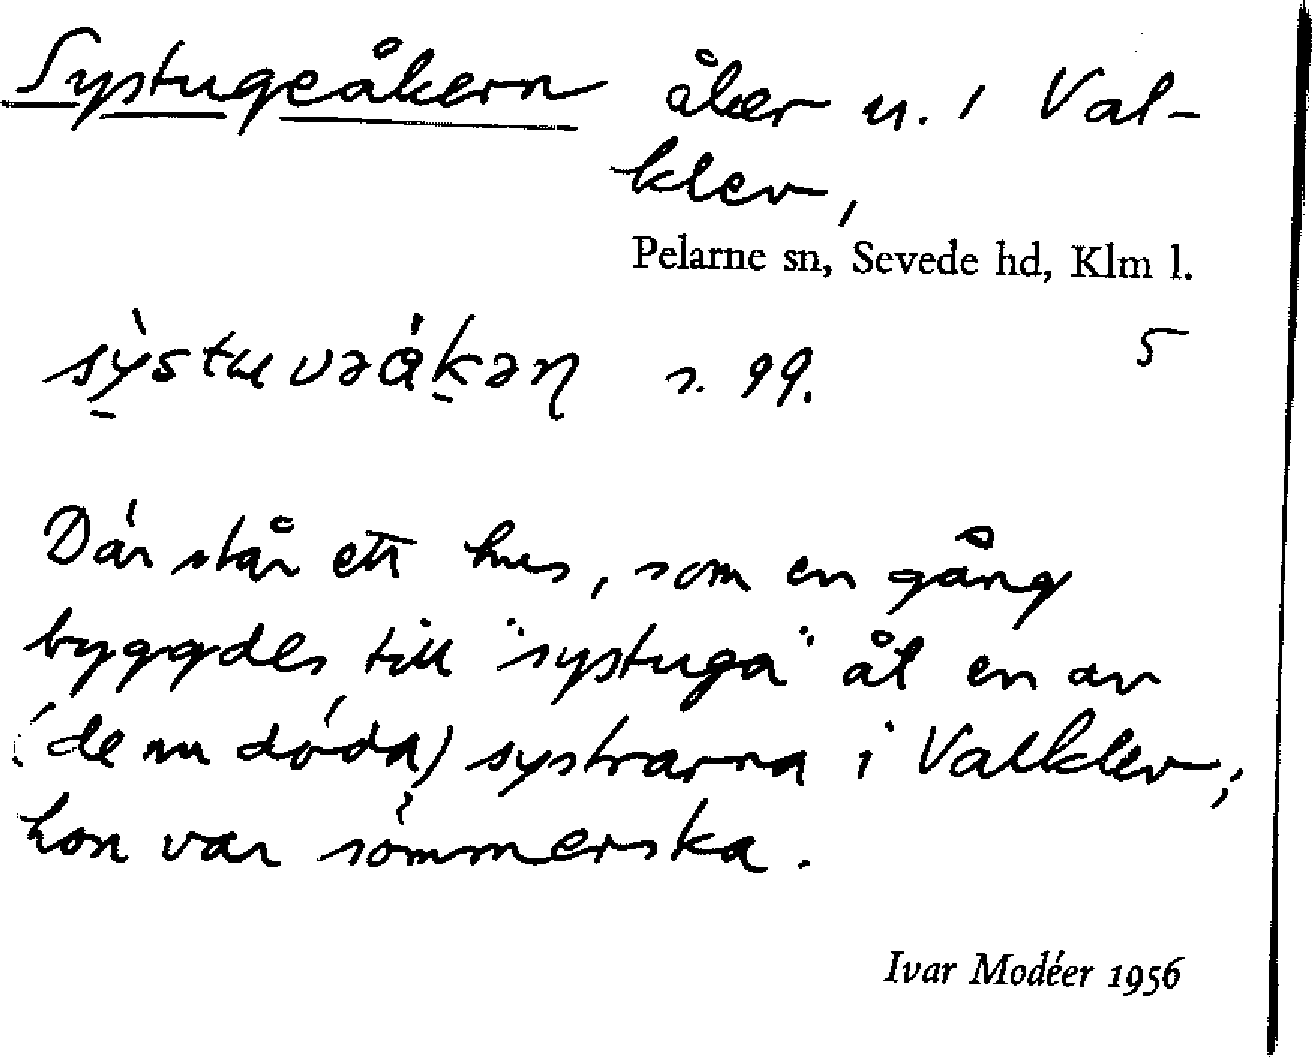 Systugeåkern åker u. / Val-
klev,
Pelarne sn, Sevede hd, Klm l.
5
sỳstuvəåkəɳ s. 99.
Där står ett hus, som en gång
byggdes till "systuga" åt en av
(de nu döda) systrarna i Valklev;
hon var sömmerska.
Ivar Modéer 1956